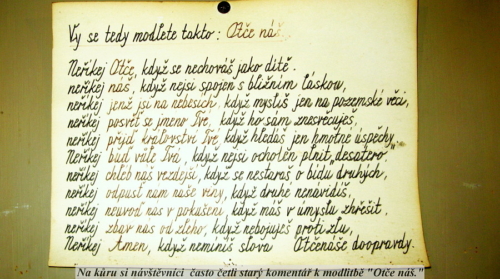 Vy se tedy modlete takto: Otče náš
Neříkej Otče, když se nechováš jako dítě.
neříkej náš, když nejsi spojen s bližním láskou,
neříkej jenž jsi na nebesích, když myslíš jen na pozemské věci,
neříkej posvěť se jméno Tvé, když ho sám znesvěcuješ,
neříkej přijď království Tvé, když hledáš jen hmotné úspěchy,
Neříkej buď vůle Tvá, když nejsi ochoten plnit „desatero"
neříkej chléb náš vezdejší, když se nestaráš o bídu druhých,
neříkej odpusť nám naše viny, když druhé nenávidíš.
neříkej neuvoď nás v pokušení, když máš v úmyslu zhřešit.
neříkej zbav nás od zlého, když nebojuješ proti zlu,
Neříkej Amen, když nemíníš slova Otčenáše doopravdy.
Na kůru si návštěvníci často četli starý komentář k modlitbě "Otče náš."